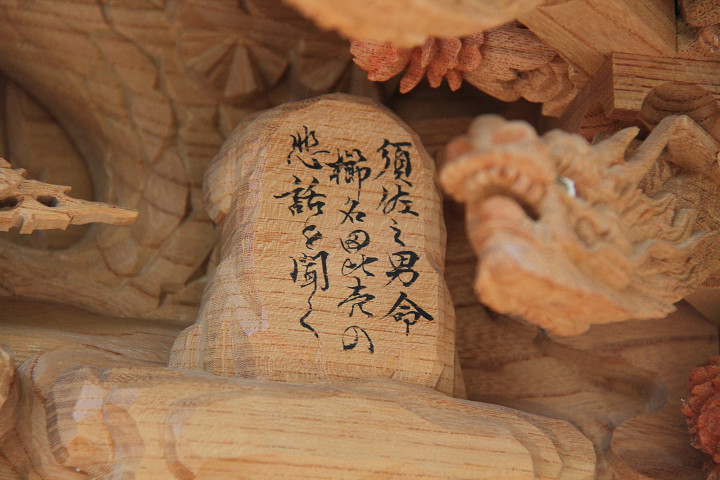 須佐之男命
櫛名田比売の
悲話を聞く